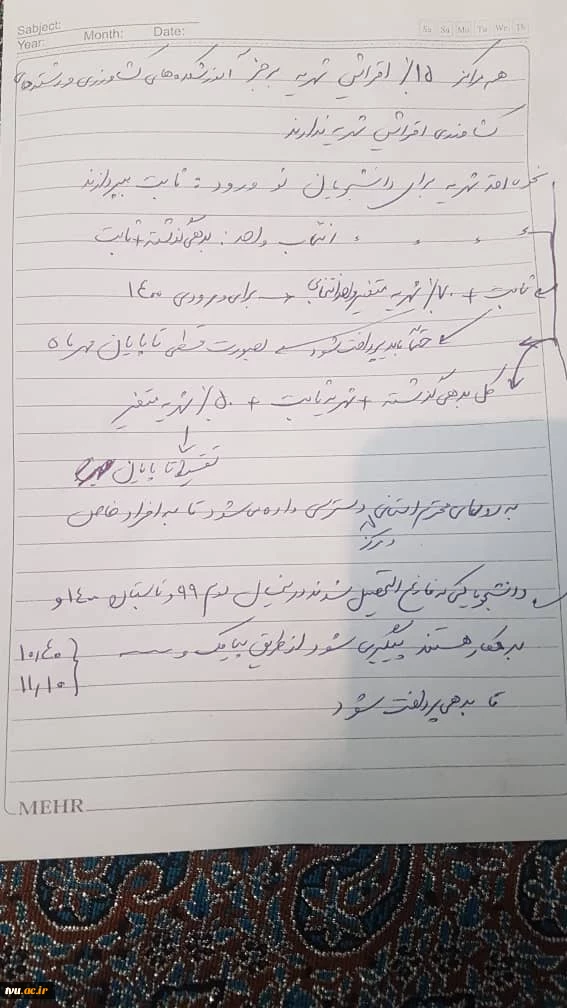 Sabject:
Year: Month: Date:
Sa Su Mo Tu We Th
هر مراکز ۱۵٪ افزایش شهریه بجز آموزشکده‌های کشاورزی و رشته‌های
کشاورزی افزایش شهریه ندارند
نحوه اخذ شهریه برای دانشجویان نو ورود : ثابت بپردازند
انتخاب واحد : بدهی گذشته + ثابت
ثابت + ۷۰٪ شهریه متغیر واحد انتخابی → برای ورودی ۱۴۰۰
حتما باید پرداخت شود بصورت قسطی تا پایان مهرماه
کل بدهی گذشته + شهریه ثابت + ۵۰٪ شهریه متغیر
تقسیط تا پایان
به روسای محترم استانی و مراکز دسترسی داده می‌شود تا به افراد خاص
دانشجویانیکه فارغ التحصیل شدند در نیمسال دوم ۹۹ و تابستان ۱۴۰۰ و
بدهکار هستند پیگیری شود از طریق پیامک و
۱۰،۴۰
۱۱،۱۰
تا بدهی پرداخت شود
MEHR
tvu.ac.ir